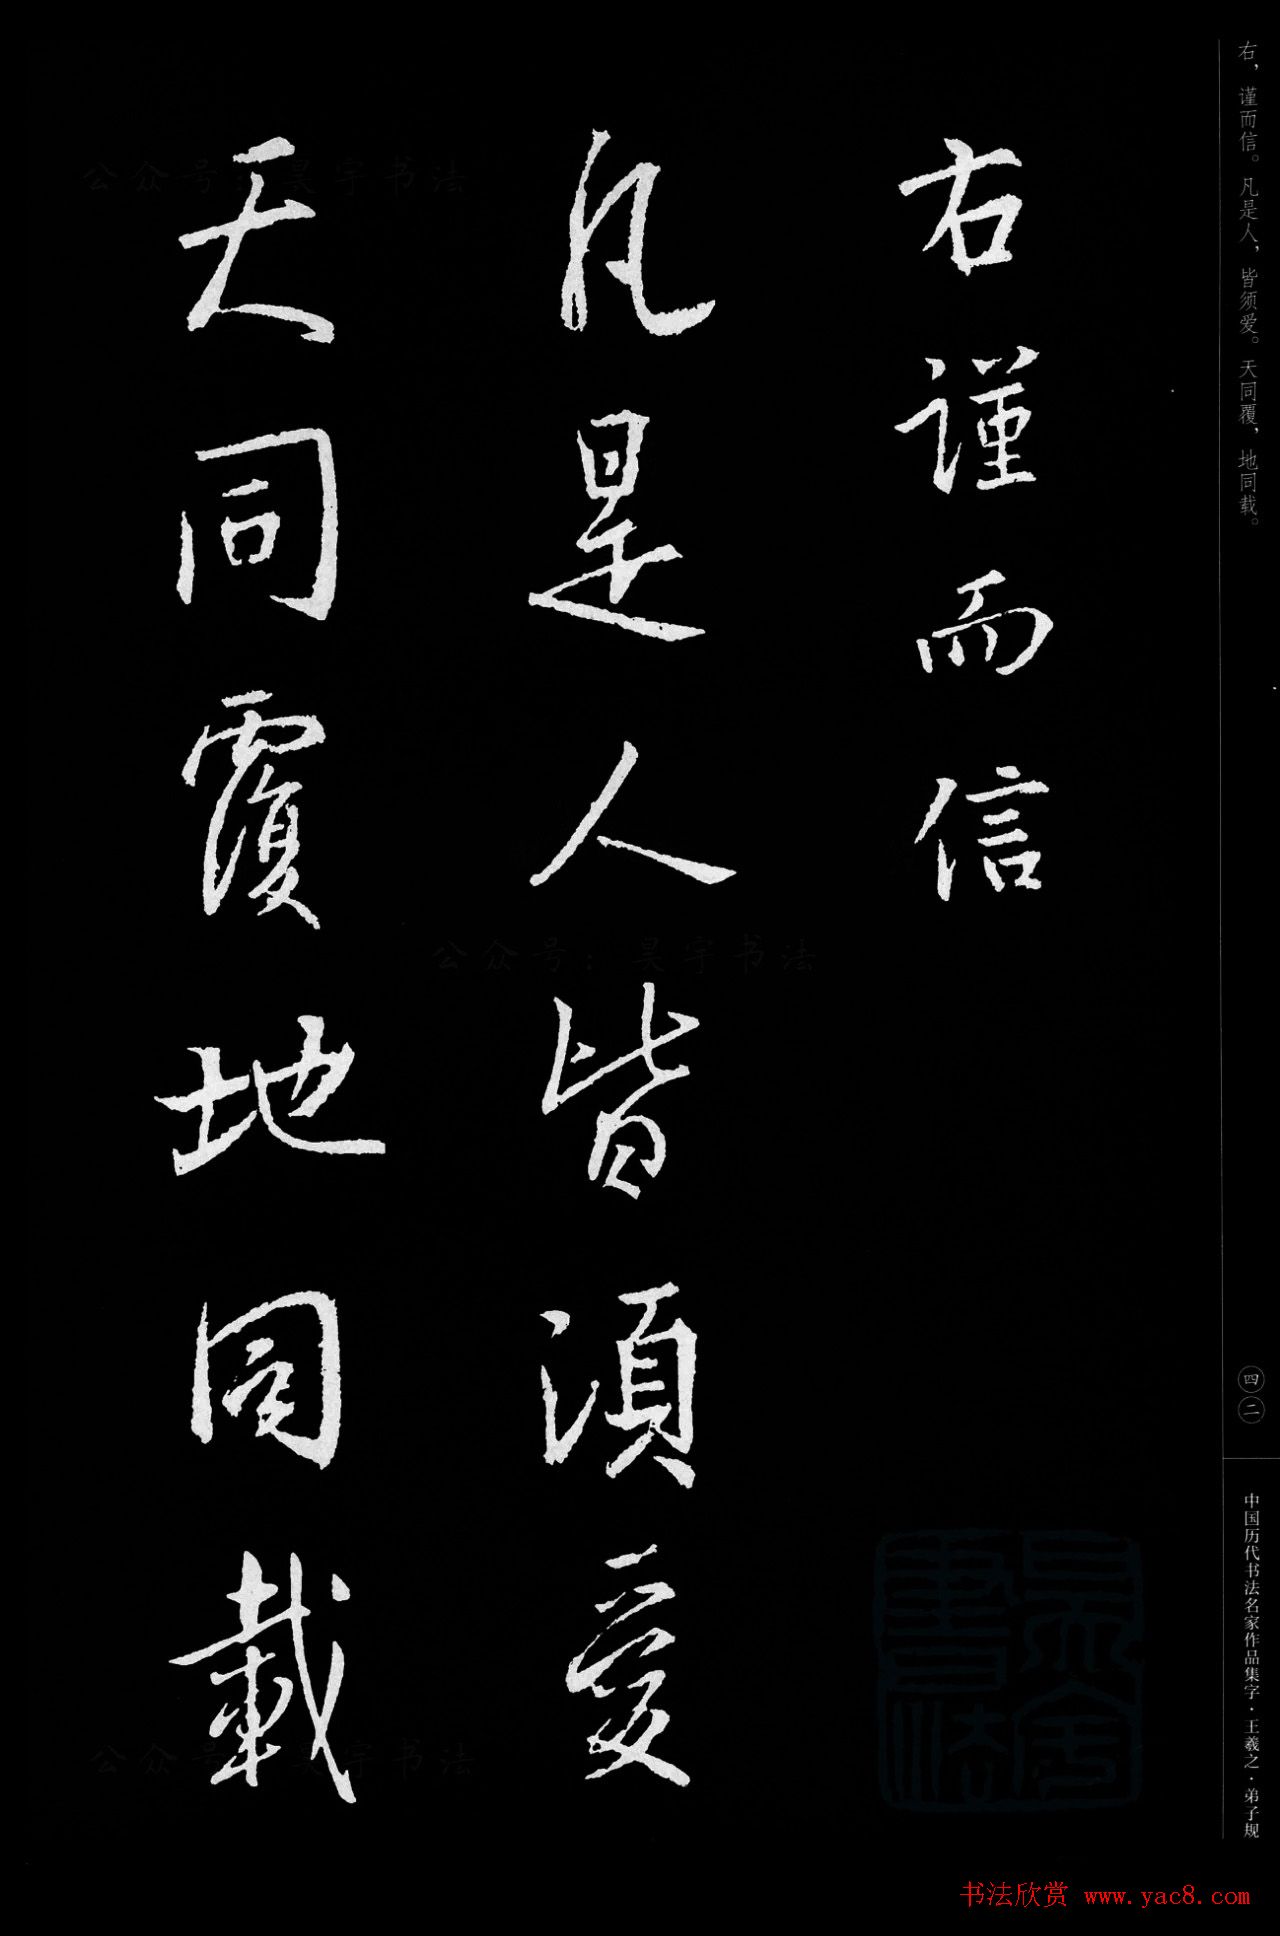 右，谨而信。凡是人，皆须爱。天同覆，地同载。
右謹而信
凡是人皆須愛
天同覆地同載
四二
中国历代书法名家作品集字·王羲之·弟子规
公众号：昊宇书法
公众号：昊宇书法
公众号：昊宇书法
昊宇書法
书法欣赏 www.yac8.com